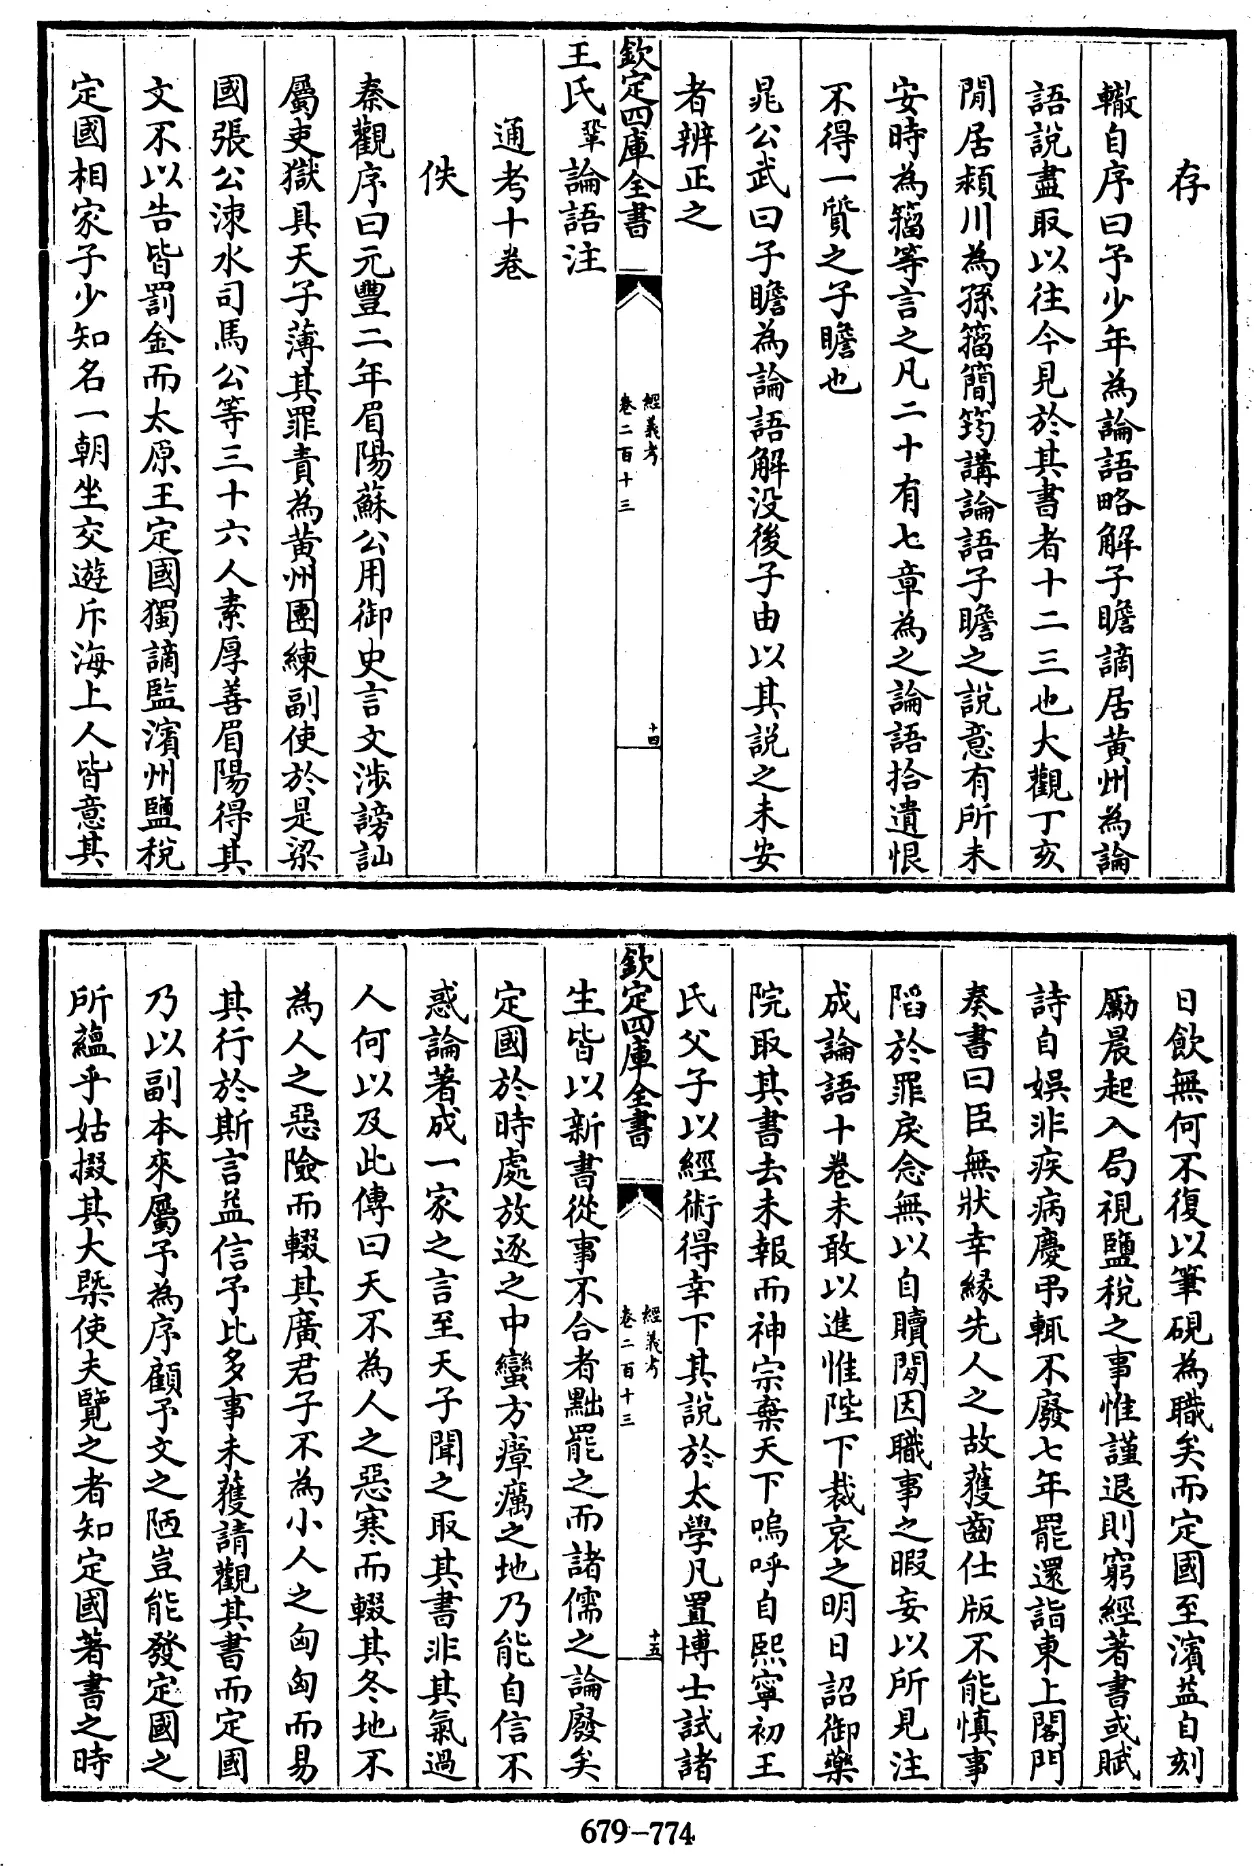 存
轍自序曰予少年為論語略解子瞻謫居黄州為論
語說盡取以往今見於其書者十二三也大觀丁亥
閒居潁川為孫籀簡筠講論語子瞻之說意有所未
安時為籀等言之凡二十有七章為之論語拾遺恨
不得一質之子瞻也
晁公武曰子瞻為論語解没後子由以其說之未安
者辨正之
欽定四庫全書
經義考
卷二百十三
十四
王氏鞏論語注
通考十卷
佚
秦觀序曰元豐二年眉陽蘇公用御史言文涉謗訕
屬吏獄具天子薄其罪責為黄州團練副使於是梁
國張公涑水司馬公等三十六人素厚善眉陽得其
文不以告皆罰金而太原王定國獨謫監濱州鹽稅
定國相家子少知名一朝坐交遊斥海上人皆意其
日飲無何不復以筆硯為職矣而定國至濱益自刻
勵晨起入局視鹽稅之事惟謹退則窮經著書或賦
詩自娯非疾病慶弔輒不廢七年罷還詣東上閤門
奏書曰臣無狀幸緣先人之故獲齒仕版不能慎事
陷於罪戾念無以自贖間因職事之暇妄以所見注
成論語十卷未敢以進惟陛下裁哀之明日詔御藥
院取其書去未報而神宗棄天下嗚呼自熙寧初王
氏父子以經術得幸下其說於太學凡置博士試諸
欽定四庫全書
經義考
卷二百十三
十五
生皆以新書從事不合者黜罷之而諸儒之論廢矣
定國於時處放逐之中蠻方瘴癘之地乃能自信不
惑論著成一家之言至天子聞之取其書非其氣過
人何以及此傳曰天不為人之惡寒而輟其冬地不
為人之惡險而輟其廣君子不為小人之匈匈而易
其行於斯言益信予比多事未獲請觀其書而定國
乃以副本來屬予為序顧予文之陋豈能發定國之
所蘊乎姑掇其大槩使夫覽之者知定國著書之時
679-774